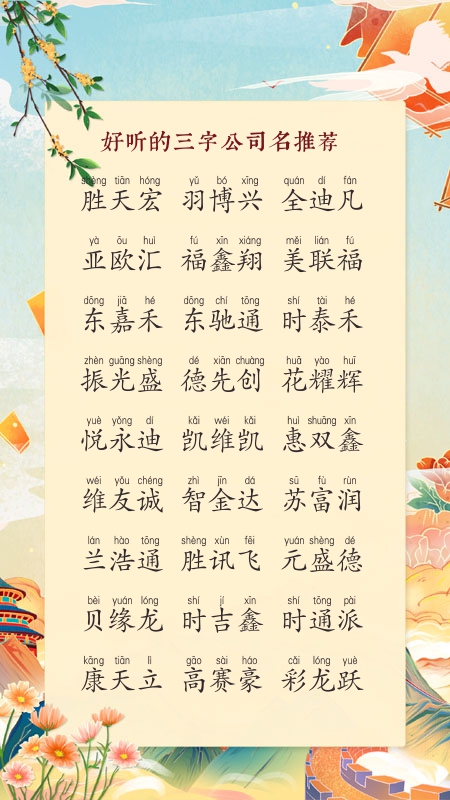 好听的三字公司名推荐
shèng tiān hóng yǔ bó xīng quán dí fán
胜天宏 羽博兴 全迪凡
yà ōu huì fú xīn xiáng měi lián fú
亚欧汇 福鑫翔 美联福
dōng jiā hé dōng chí tōng shí tài hé
东嘉禾 东驰通 时泰禾
zhèn guāng shèng dé xiān chuàng huā yào huī
振光盛 德先创 花耀辉
yuè yǒng dí kǎi wéi kǎi huì shuāng xīn
悦永迪 凯维凯 惠双鑫
wéi yǒu chéng zhì jīn dá sū fù rùn
维友诚 智金达 苏富润
lán hào tōng shèng xùn fēi yuán shèng dé
兰浩通 胜讯飞 元盛德
bèi yuán lóng shí jí xīn shí tōng pài
贝缘龙 时吉鑫 时通派
kāng tiān lì gāo sài háo cǎi lóng yuè
康天立 高赛豪 彩龙跃